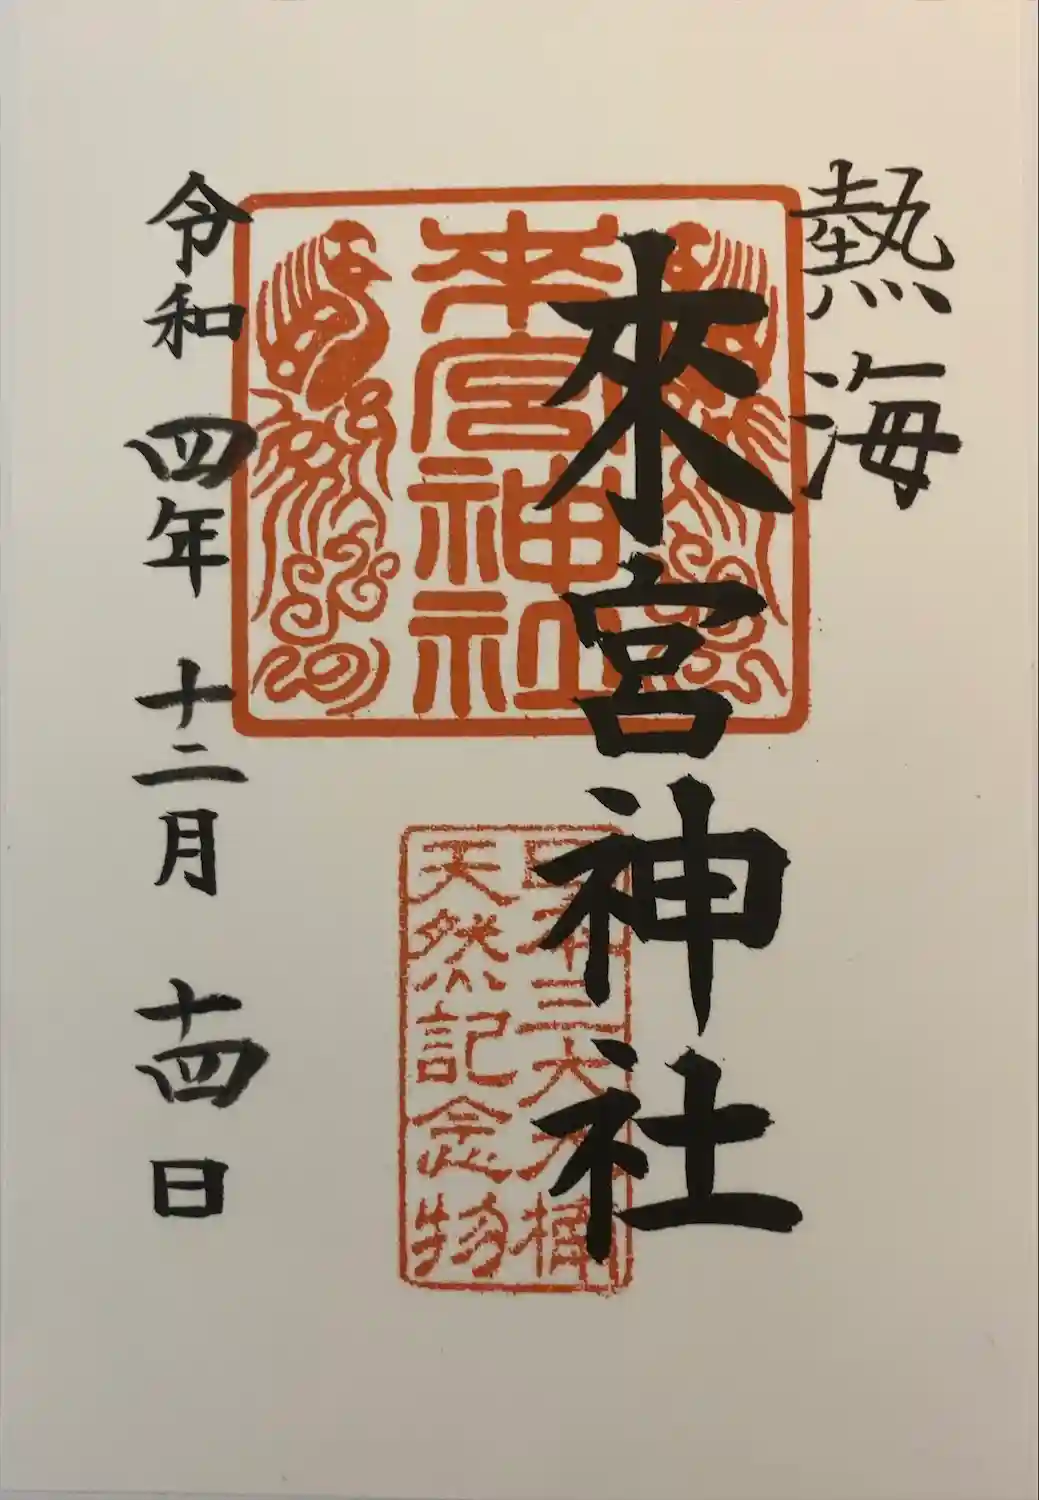 熱海
來宮神社
来宮
神社
日本三大大楠
天然記念物
令和 四年 十二月 十四日